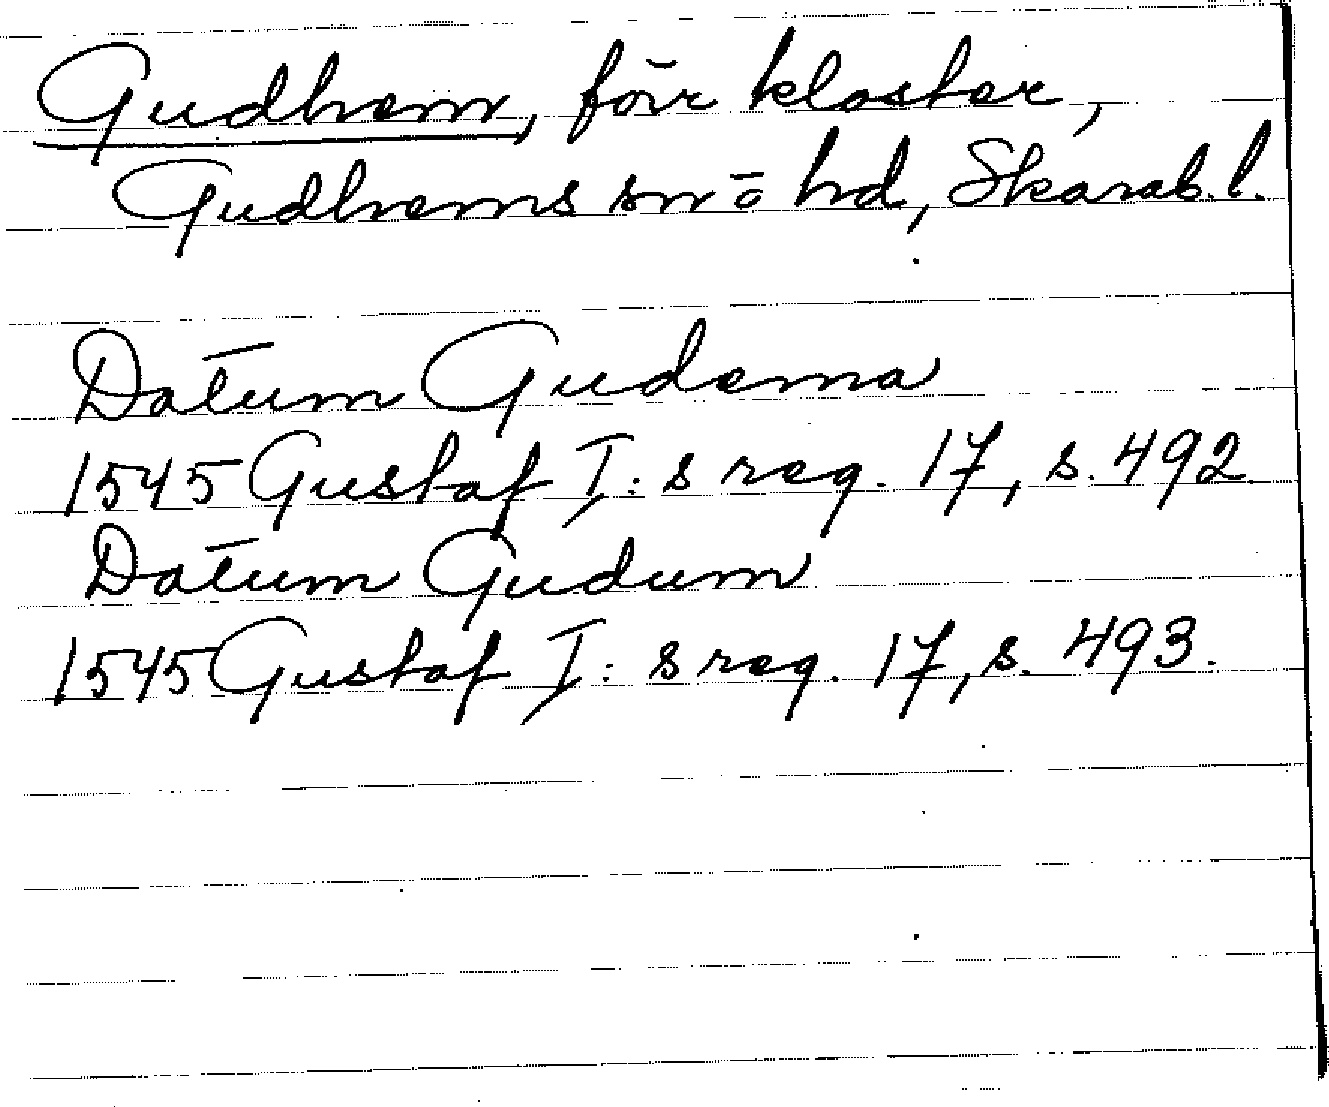 Gudhem, förr kloster,
Gudhems sn o hd, Skarab. l.
Datum Gudema
1545 Gustaf I:s reg. 17, s. 492
Datum Gudum
1545 Gustaf I:s reg. 17, s. 493.